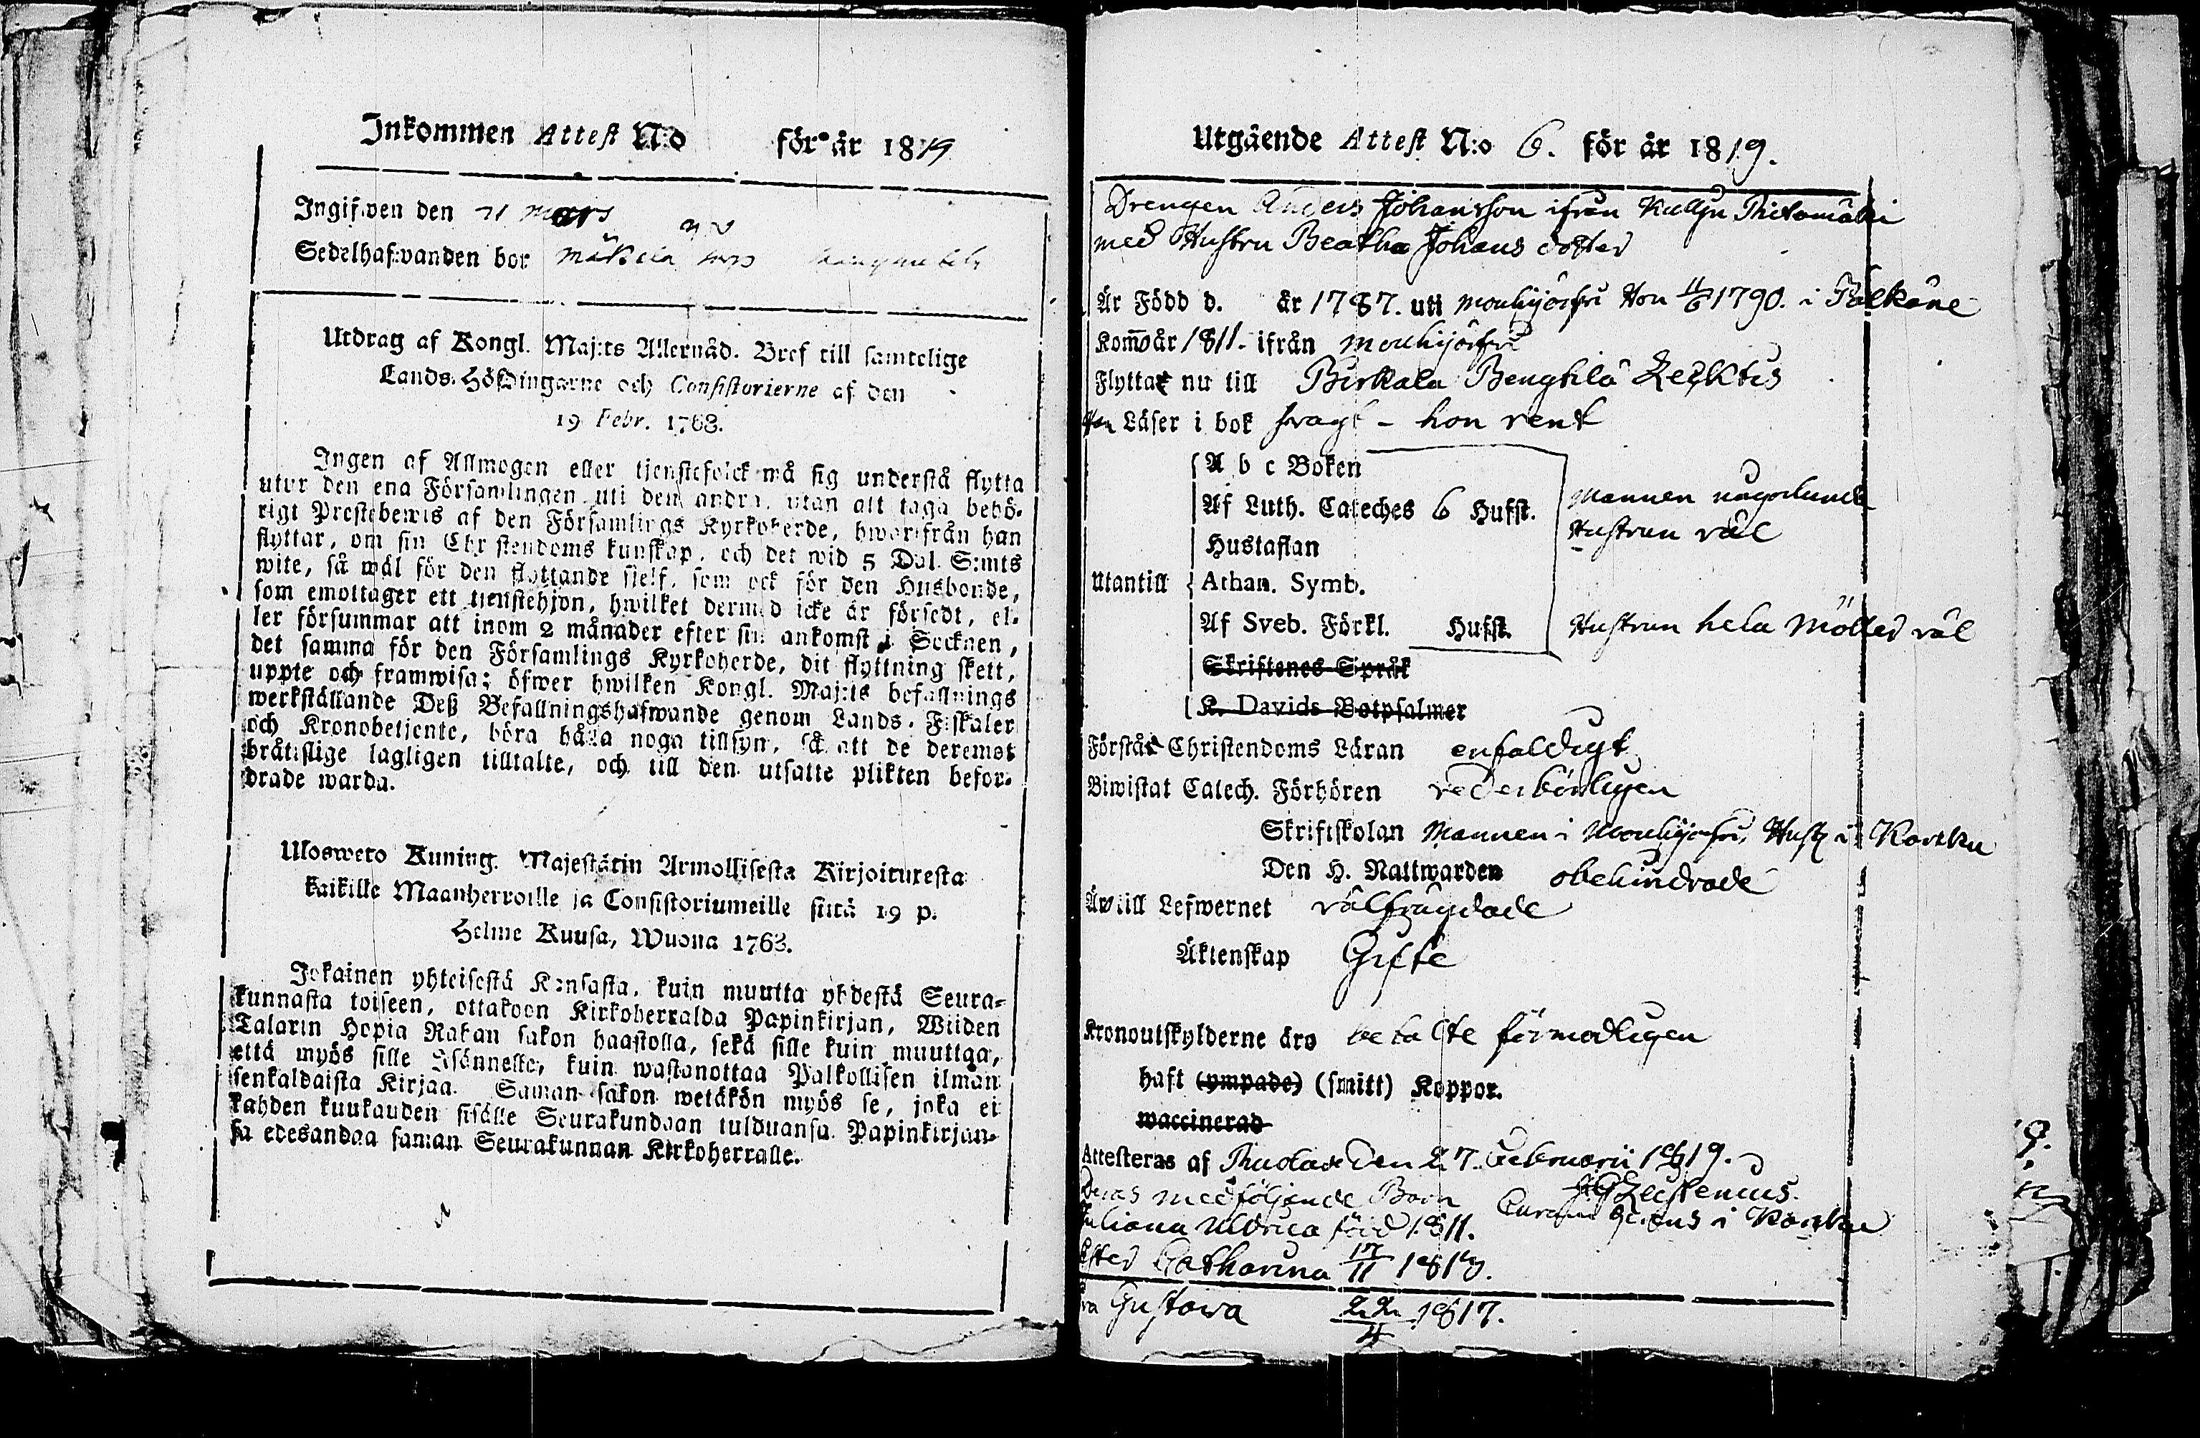 Inkommen Attest N:o för år 1819
Ingifwen den 21 Mars
Sedelhafwanden bor Mäkelä
Utdrag af Kongl. Maj:ts Allernåd. Bref till samtelige
Lands-Höfdingarne och Consistorierne af den
19 Febr. 1763.
Ingen af Allmogen eller tjenstefolck må sig understå flytta
utur den ena Församlingen uti den andra, utan att taga behö-
rigt Prestebewis af den Församlings Kyrkoherde, hworifrån han
flyttar, om sin Christendoms kunskap, och det wid 5 Dal. S:mts
wite, så wäl för den flyttande sjelf, som ock för den Husbonde,
som emottager ett tjenstehjon, hwilket dermed icke är försedt, el-
ler försummar att inom 2 månader efter sin ankomst i Socknen,
det samma för den Församlings Kyrkoherde, dit flyttning skett,
uppte och framwisa; öfwer hwilken Kongl. Maj:ts befallnings
werkställande Deß Befallningshafwande genom Lands-Fiskaler
och Kronobetjente, böra hålla noga tillsyn, så att de deremot
bråtislige lagligen tilltalte, och till den utsatte plikten befor-
drade warda.
Uloswето Kuning. Majestätin Armollisesta Kirjoituxesta
kaikille Maanherroille ja Consistoriumeille siitä 19 p.
Helme Kuusa, Wuona 1763.
Jokainen yhteisestä Kansasta, kuin muutta yhdestä Seura-
kunnasta toiseen, ottakoon Kirkoherralda Papinkirjan, Wiiden
Talarin Hopia Rahan sakon haastolla, sekä sille kuin muuttaa,
että myös sille Isännelle, kuin wastanottaa Palkollisen ilman
senkaldaista Kirjaa. Saman sakon wetäkön myös se, joka ei
kahden kuukauden sisälle Seurakundaan tulduansa Papinkirjan-
sa edesandaa saman Seurakunnan Kirkoherralle.
Utgående Attest N:o 6. för år 1819.
Drengen Anders Johansson ifrån
med Hustru Beatha Johans dotter
Är Född d. år 1787. uti Mouhijärfvi Hon 11/6 1790. i Pälkäne
Kom år 1811. ifrån Mouhijärfvi
Flyttat nu till Birkala Bengtilä
Han Läser i bok svagt - hon rent
A b c Boken
Af Luth. Cateches 6 Hufst. Mannen någorlunda
Hustaflan Hustrun väl
Utantill Athan. Symb.
Af Sveb. Förkl. Hufst. Hustrun hela väl
Skriftenes Språk
K. Davids Botpsalmer
Förstår Christendoms Läran enfaldigt
Biwistat Catech. Förhören vederbörligen
Skriftskolan Mannen i Mouhijärfvi, Hust. i Karkku
Den H. Nattwarden obehindrade
Är till Lefwernet välfrägdade
Äktenskap Gifte
Kronoutskylderne äro betalte förmodligen
haft (ympade) (smitt) Koppor.
waccinerad
Attesteras af den 27. Februarii 1819.
Deras medföljande Barn
Juliana Uldrica född 1811.
Catharina 17/11
Gustava 22/4 1817.
i Karkku